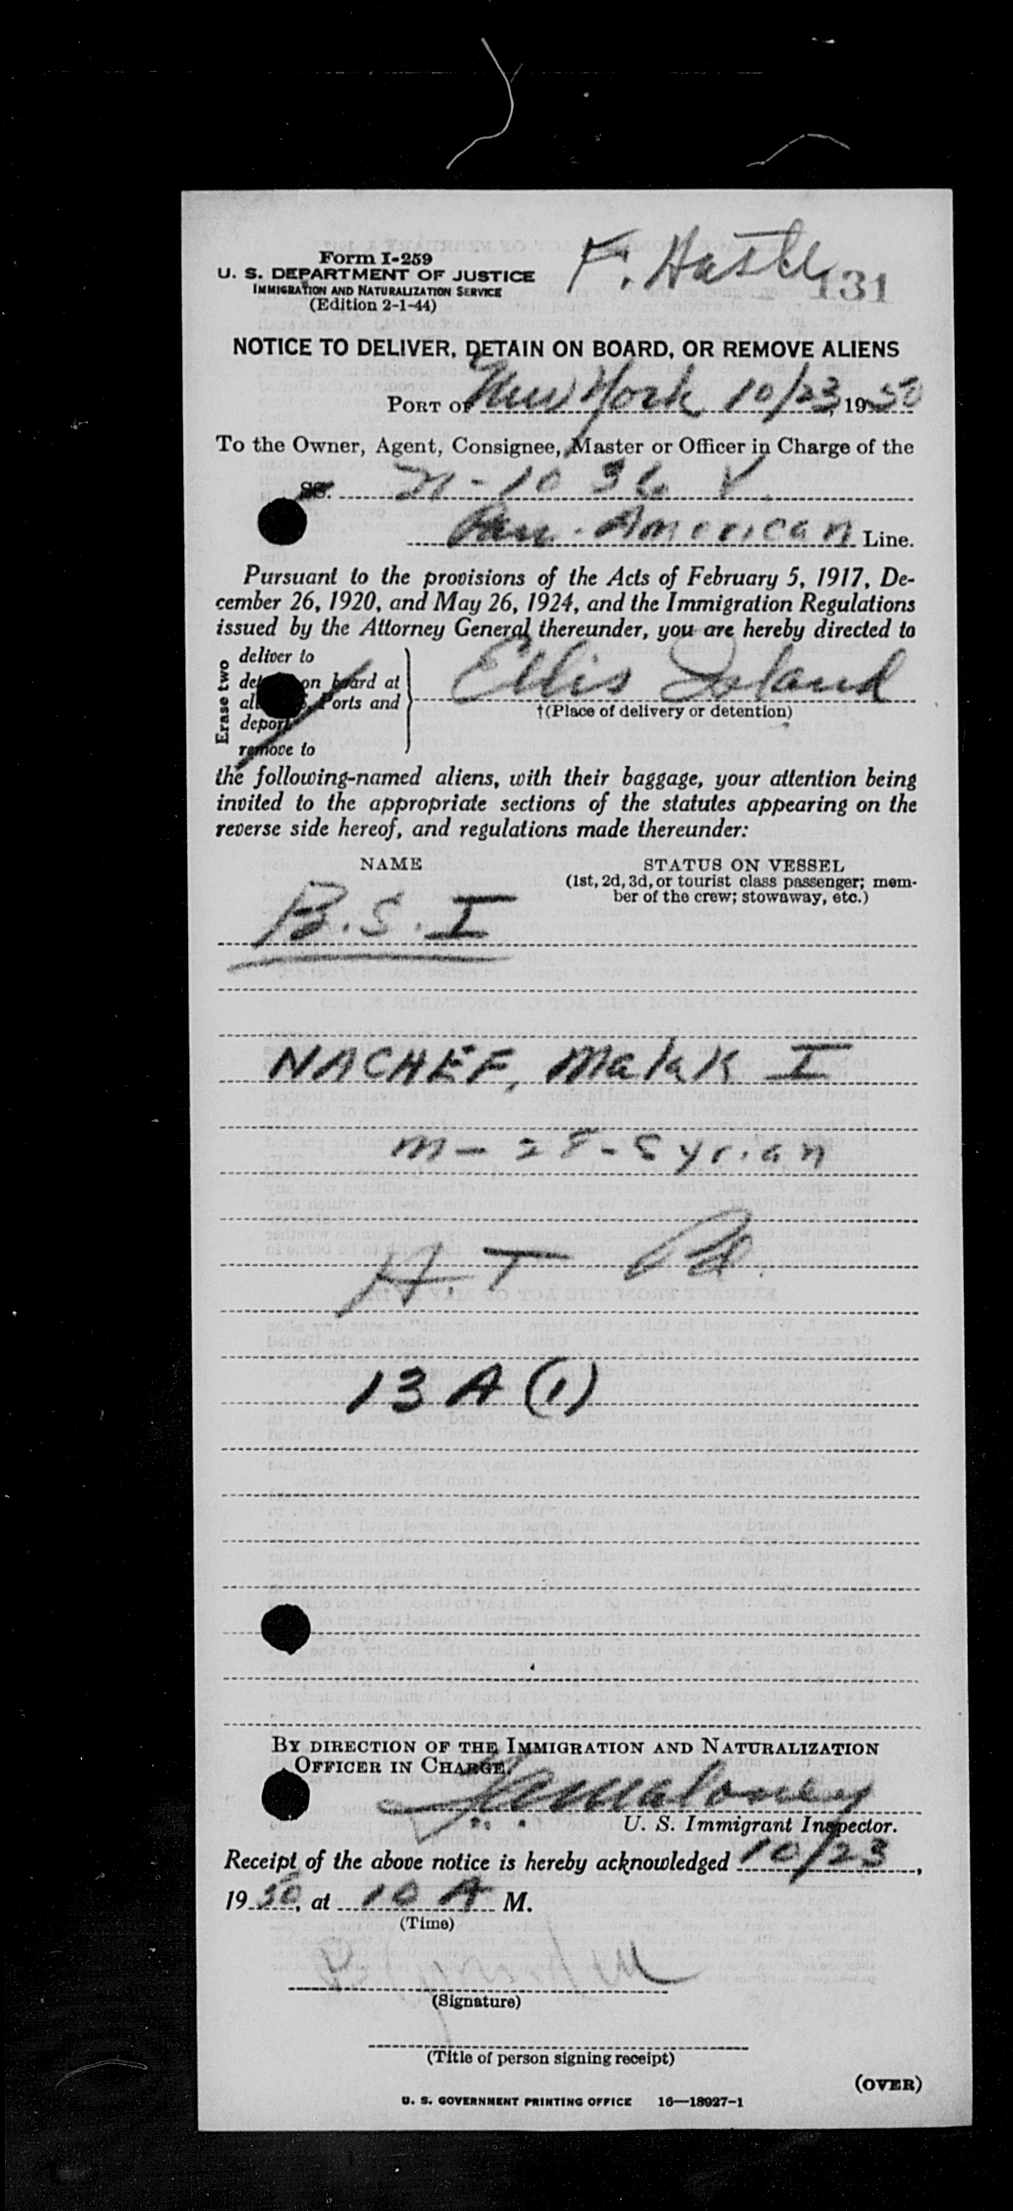 Form I-259
U. S. DEPARTMENT OF JUSTICE
IMMIGRATION AND NATURALIZATION SERVICE
(Edition 2-1-44)
F.
131
NOTICE TO DELIVER, DETAIN ON BOARD, OR REMOVE ALIENS
PORT OF New York 10/23, 1950
To the Owner, Agent, Consignee, Master or Officer in Charge of the
SS. N-1036 V.
Pan-American Line.
Pursuant to the provisions of the Acts of February 5, 1917, De-
cember 26, 1920, and May 26, 1924, and the Immigration Regulations
issued by the Attorney General thereunder, you are hereby directed to
Erase two
deliver to
on board at
Ports and
deport
remove to
Ellis Island
†(Place of delivery or detention)
the following-named aliens, with their baggage, your attention being
invited to the appropriate sections of the statutes appearing on the
reverse side hereof, and regulations made thereunder:
NAME
STATUS ON VESSEL
(1st, 2d, 3d, or tourist class passenger; mem-
ber of the crew; stowaway, etc.)
B.S.I
NACHEF, Malak I
m-28-Syrian
H.T
13 A (1)
BY DIRECTION OF THE IMMIGRATION AND NATURALIZATION
OFFICER IN CHARGE.
Maloney
U. S. Immigrant Inspector.
Receipt of the above notice is hereby acknowledged 10/23,
1950, at 10 A M.
(Time)
(Signature)
(Title of person signing receipt)
(OVER)
U. S. GOVERNMENT PRINTING OFFICE 16—18927-1